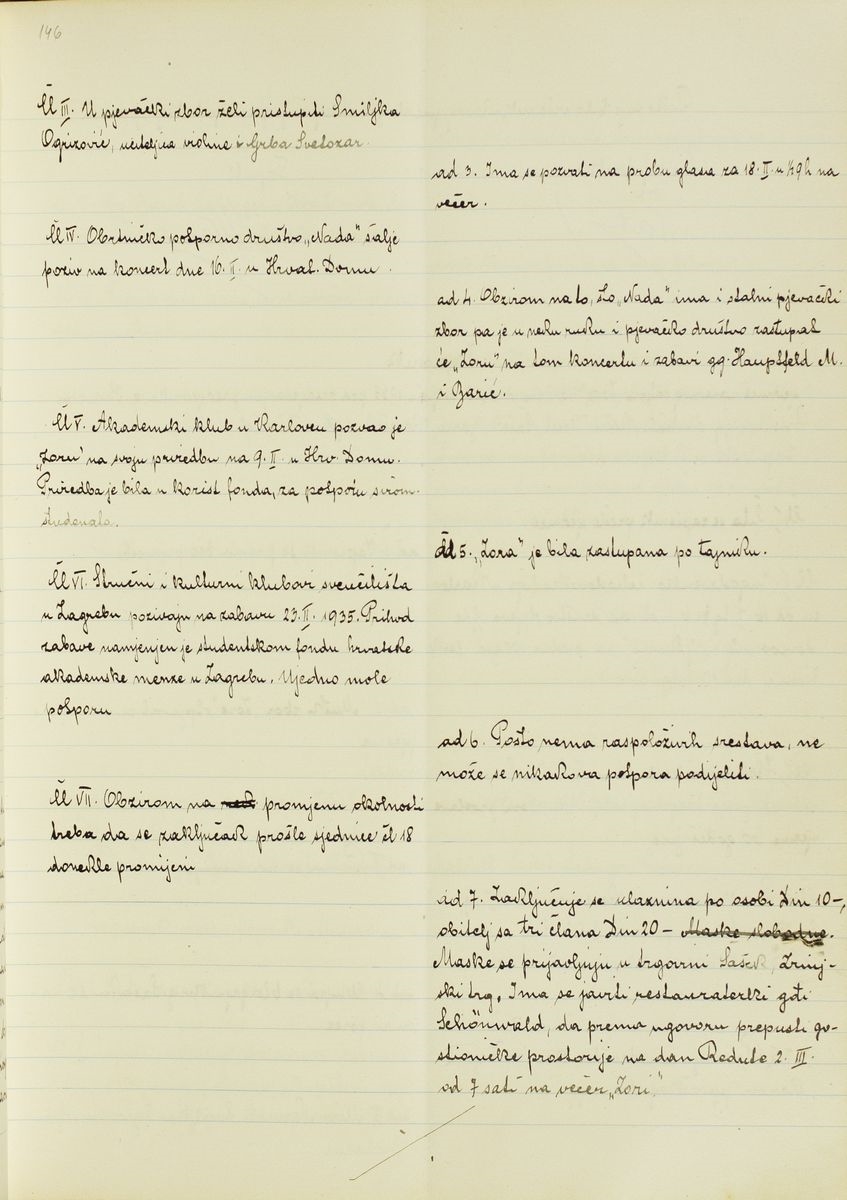 146
Čl III. U pjevački zbor želi pristupiti Smiljka
Ogrizović, učiteljica violine i Grba Svetozar.
ad 3. Ima se pozvati na probu glasa za 18. II. u ½9 h na
večer.
Čl IV. Obrtničko potporno društvo „Nada" šalje
poziv na koncert dne 16. II. u Hrvat. Domu.
ad 4. Obzirom na to, što „Nada" ima i stalni pjevački
zbor pa je u neku ruku i pjevačko društvo zastupat
će „Zoru" na tom koncertu i zabavi gg. Hauptfeld M.
i Barić.
Čl V. Akademski klub u Karlovcu pozvao je
„Zoru" na svoju priredbu na 9. II. u Hrv. Domu.
Priredba je bila u korist fonda, za potporu sirom.
studenata.
Ad 5. „Zora" je bila zastupana po tajniku.
Čl VI. Stručni i kulturni klubovi sveučilišta
u Zagrebu pozivaju na zabavu 23. II. 1935. Prihod
zabave namjenjen je studentskom fondu hrvatske
akademske menze u Zagrebu. Ujedno mole
potporu
ad 6. Pošto nema raspoloživih srestava, ne
može se nikakova potpora podijeliti.
Čl VII. Obzirom na promjenu okolnosti
treba da se zaključak prošle sjednice čl 18
donekle promijeni
ad 7. Zaključuje se ulaznina po osobi Din 10-,
obitelj sa tri člana Din 20- Maske slobodne.
Maske se prijavljuju u trgovini Zrinj-
ski trg. Ima se javiti restauraterki gđi
Schönwald, da prema ugovoru prepusti go-
stioničke prostorije na dan Redute 2. III.
od 7 sati na večer „Zori"